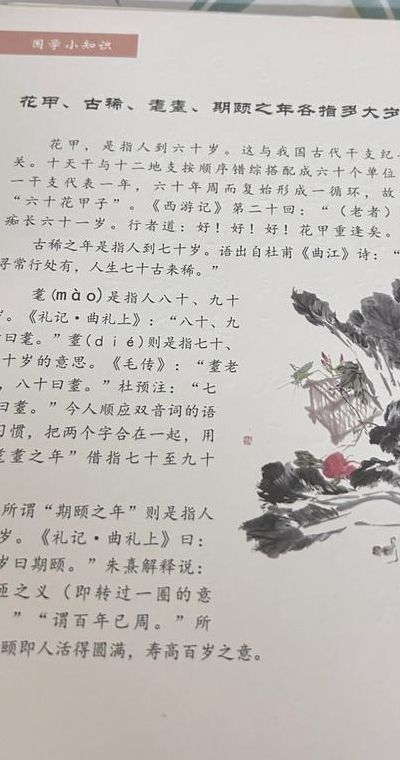 国学小知识
花甲、古稀、耄耋、期颐之年各指多大岁
花甲，是指人到六十岁。这与我国古代干支纪
关。十天干与十二地支按顺序错综搭配成六十个单位
一干支代表一年，六十年周而复始形成一循环，故
“六十花甲子”。《西游记》第二十回：“（老者）
痴长六十一岁。行者道：好！好！好！花甲重逢矣。
古稀之年是指人到七十岁。语出自杜甫《曲江》诗：“
寻常行处有，人生七十古来稀。”
耄(mào)是指人八十、九十
岁。《礼记·曲礼上》：“八十、九
曰耄。”耋(dié)则是指七十、
十岁的意思。《毛传》：“耋老
，八十曰耋。”杜预注：“七
曰耋。”今人顺应双音词的语
习惯，把两个字合在一起，用
耄耋之年”借指七十至九十
所谓“期颐之年”则是指人
岁。《礼记·曲礼上》曰：
岁曰期颐。”朱熹解释说：
匝之义（即转过一圈的意
”“谓百年已周。”所
颐即人活得圆满，寿高百岁之意。